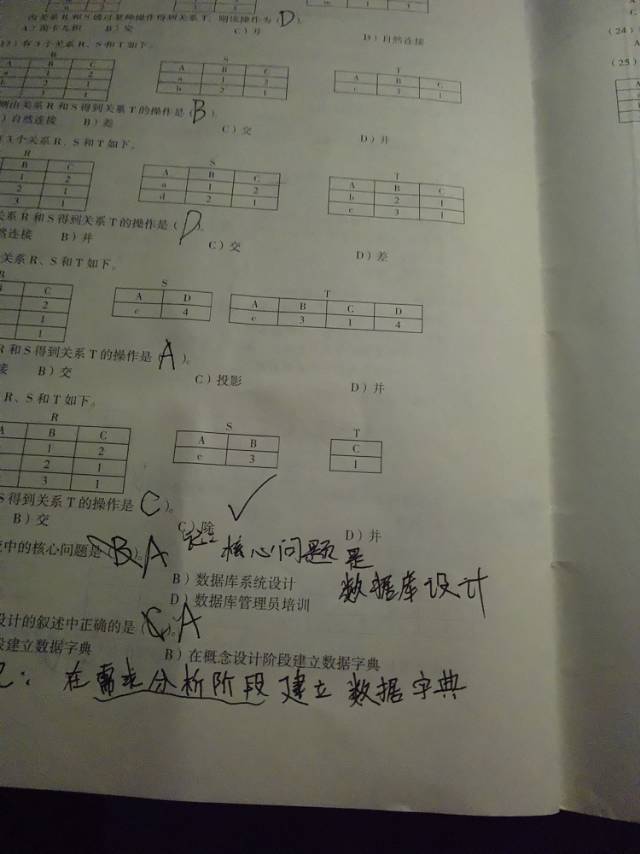 由关系R和S通过某种操作得到关系T，则该操作为（D）。
A）笛卡尔积 B）交 C）并 D）自然连接
有3个关系R、S和T如下。
R S T
A B C A B C A B C
1 2 a 1 2 c 3 1
b 2 1 b 2 1
3 1
则由关系R和S得到关系T的操作是（B）。
）自然连接 B）差 C）交 D）并
3个关系R、S和T如下。
R S T
B C A B C A B C
1 2 a 1 2 b 2 1
2 1 d 2 1 c 3 1
3 1
关系R和S得到关系T的操作是（D）。
然连接 B）并 C）交 D）差
关系R、S和T如下。
R S T
C A D A B C D
2 c 4 c 3 1 4
1
1
R和S得到关系T的操作是（A）。
接 B）交 C）投影 D）并
R、S和T如下。
R S T
A B C A B C
1 2 c 3 1
2 1
3 1
S得到关系T的操作是（C）。
B）交 C）除 D）并
中的核心问题是（B）。A 核心问题是
B）数据库系统设计 数据库设计
D）数据库管理员培训
设计的叙述中正确的是（C）。A
段建立数据字典 B）在概念设计阶段建立数据字典
记：在需求分析阶段建立数据字典
(24)
A
C
(25)
A